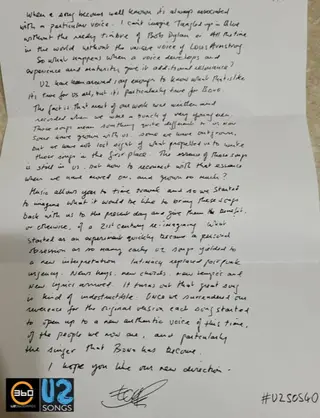 When a song becomes well known its always associated
with a particular voice. I can't imagine Tangled up in Blue
without the reedy timbre of Bob Dylan or All the time
in the world without the unique voice of Louis Armstrong
So what happens when a voice develops and
experience and maturity give it additional resonance?
U2 have been around long enough to know what that is like
It's true for us all, but its particularly true for Bono
The fact is that most of our work was written and
recorded when we were a bunch of very young men
Those songs mean something quite different to us now
Some have grown with us. some we have outgrown,
but we have not lost sight of what propelled us to write
those songs in the first place. The essence of those songs
is still in us. but how to reconnect with that essence
when we have moved on, and grown so much?
Music allows you to time travel and so we started
to imagine what it would be like to bring these songs
back with us to the present day and give them the benefit,
or otherwise, of a 21st century re-imagining. What
started as an experiment quickly became a personal
obsession as so many early U2 songs yielded to
a new interpretation. Intimacy replaced post punk
urgency. New keys, new chords, new tempos and
new lyrics arrived. It turns out that great song
is kind of indestructible. Once we surrendered our
reverence for the original version each song started
to open up to a new authentic voice of this time,
of the people we now are, and particularly
the singer that Bono has become.
I hope you like our new direction.
360
U2
SONGS
#U2SOS40